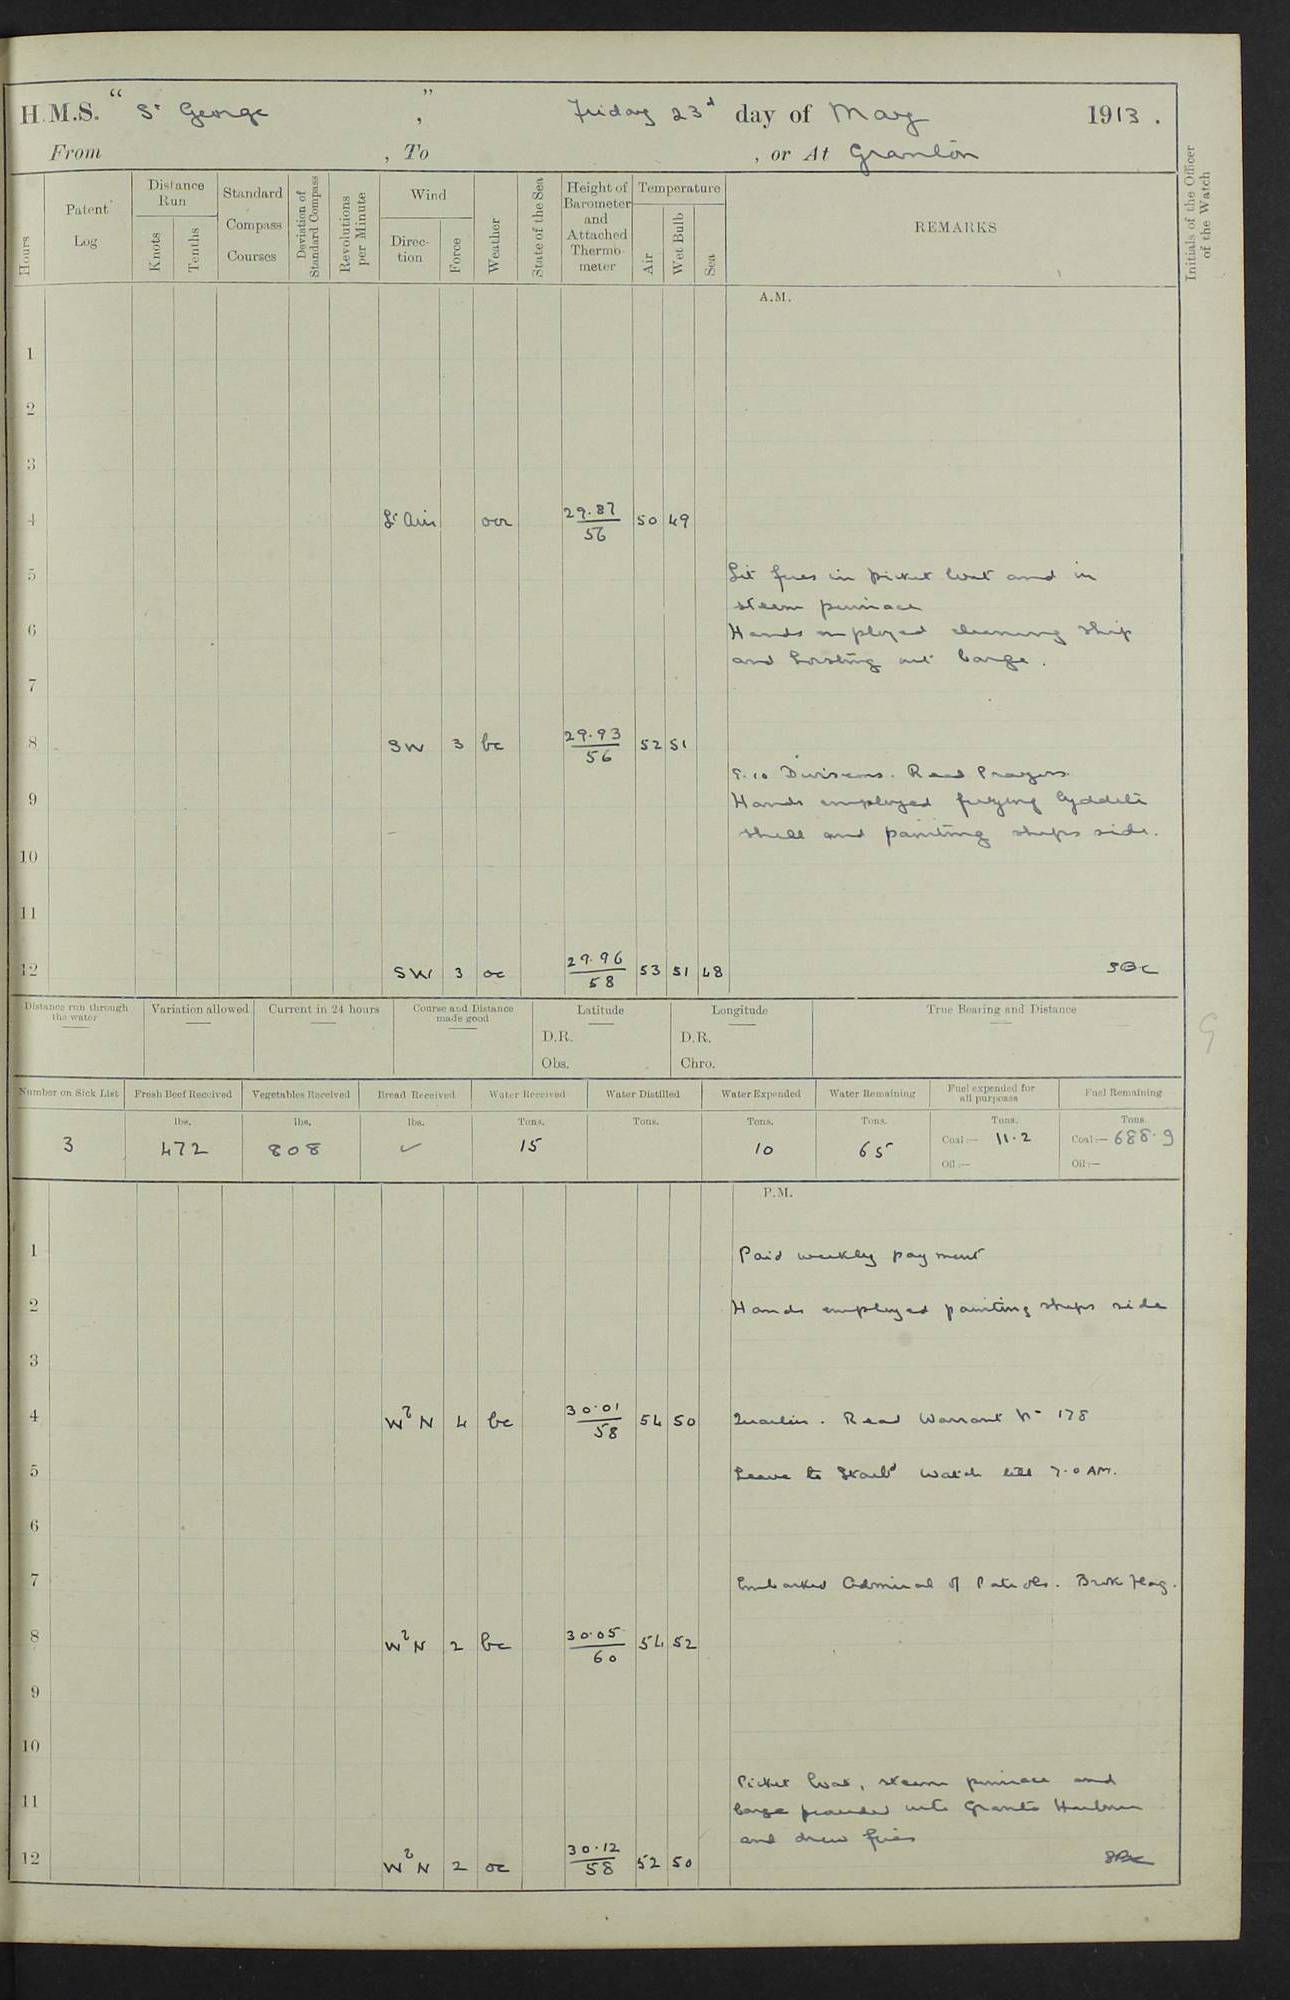 H.M.S. "St George", Friday 23d day of May 1913.
From , To , or At Granton
Hours
Patent Log
Distance Run
Knots
Tenths
Standard Compass Courses
Deviation of Standard Compass
Revolutions per Minute
Wind
Direction
Force
Weather
State of the Sea
Height of Barometer and Attached Thermometer
Temperature
Air
Wet Bulb
Sea
REMARKS
Initials of the Officer of the Watch
A.M.
1
2
3
4 Lt Airs 29.87 56 50 49
5 Lit fires in picket boat and in
steam pinnace
6 Hands employed cleaning ship
and hoisting out barge.
7
8 SW 3 bc 29.93 56 52 51
9.10 Divisions. Read Prayers.
9 Hands employed fuzing lyddite
shell and painting ships side.
10
11
12 SW 3 oc 29.96 58 53 51 48 SBC
Distance run through the water
Variation allowed
Current in 24 hours
Course and Distance made good
Latitude
D.R.
Obs.
Longitude
D.R.
Chro.
True Bearing and Distance
Number on Sick List
Fresh Beef Received
Vegetables Received
Bread Received
Water Received
Water Distilled
Water Expended
Water Remaining
Fuel expended for all purposes
Fuel Remaining
lbs. lbs. lbs. Tons. Tons. Tons. Tons. Tons. Tons.
3 472 808 ✓ 15 10 65 Coal:— 11.2 Coal:— 688.9
Oil:— Oil:—
P.M.
1 Paid weekly payment
2 Hands employed painting ships side
3
4 W N 4 bc 30.01 58 54 50 Quarters. Read Warrant No 178
5 Leave to Starbd Watch till 7.0 AM.
6
7 Embarked Admiral of Patrols. Broke flag.
8 W N 2 bc 30.05 60 54 52
9
10
Picket boat, steam pinnace and
11 barge proceeded into Granton Harbour
and drew fires
12 W N 2 oc 30.12 58 52 50 SBC